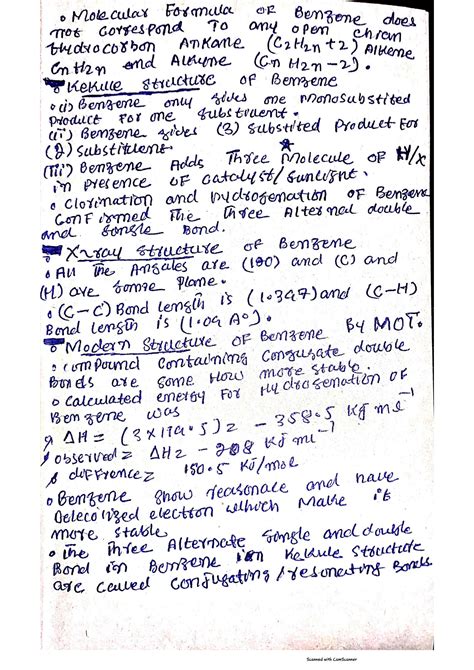 • Molecular Formula of Benzene does
not correspond To any open chain
Hydrocarbon Ankane (C2H2n+2) Alkene
CnH2n and Alkyne (Cn H2n-2).
• Kekule structure of Benzene
• (i) Benzene only gives one monosubstited
product For one substituent.
(ii) Benzene gives (3) substited Product For
(2) substituent.
(iii) Benzene Adds Three Molecule of H/X
in presence of catalyst/sunlight.
• Clorination and Hydrogenation of Benzene
Confirmed The Three Alternal double
and Songle Bond.
• X-ray structure of Benzene
• All The Angales are (120) and (C) and
(H) are somne plane.
• (C-C) Bond length is (1.397) and (C-H)
Bond length is (1.09 A°).
• Modern structure of Benzene By MOT.
• compound containing conjugate double
Bonds are some How more stable.
• calculated energy for Hydrogenation of
Benzene was
ΔH = (3x119.5) = -358.5 KJ ml-1
observed = ΔH = -208 KJ ml-1
difference = 150.5 KJ/mole
• Benzene show reasonace and have
Delecolized electron which Make it
more stable
• The Three Alternate songle and double
Bond in Benzene in Kekule structure
are called conjugating/resonating Bonds
Scanned with CamScanner